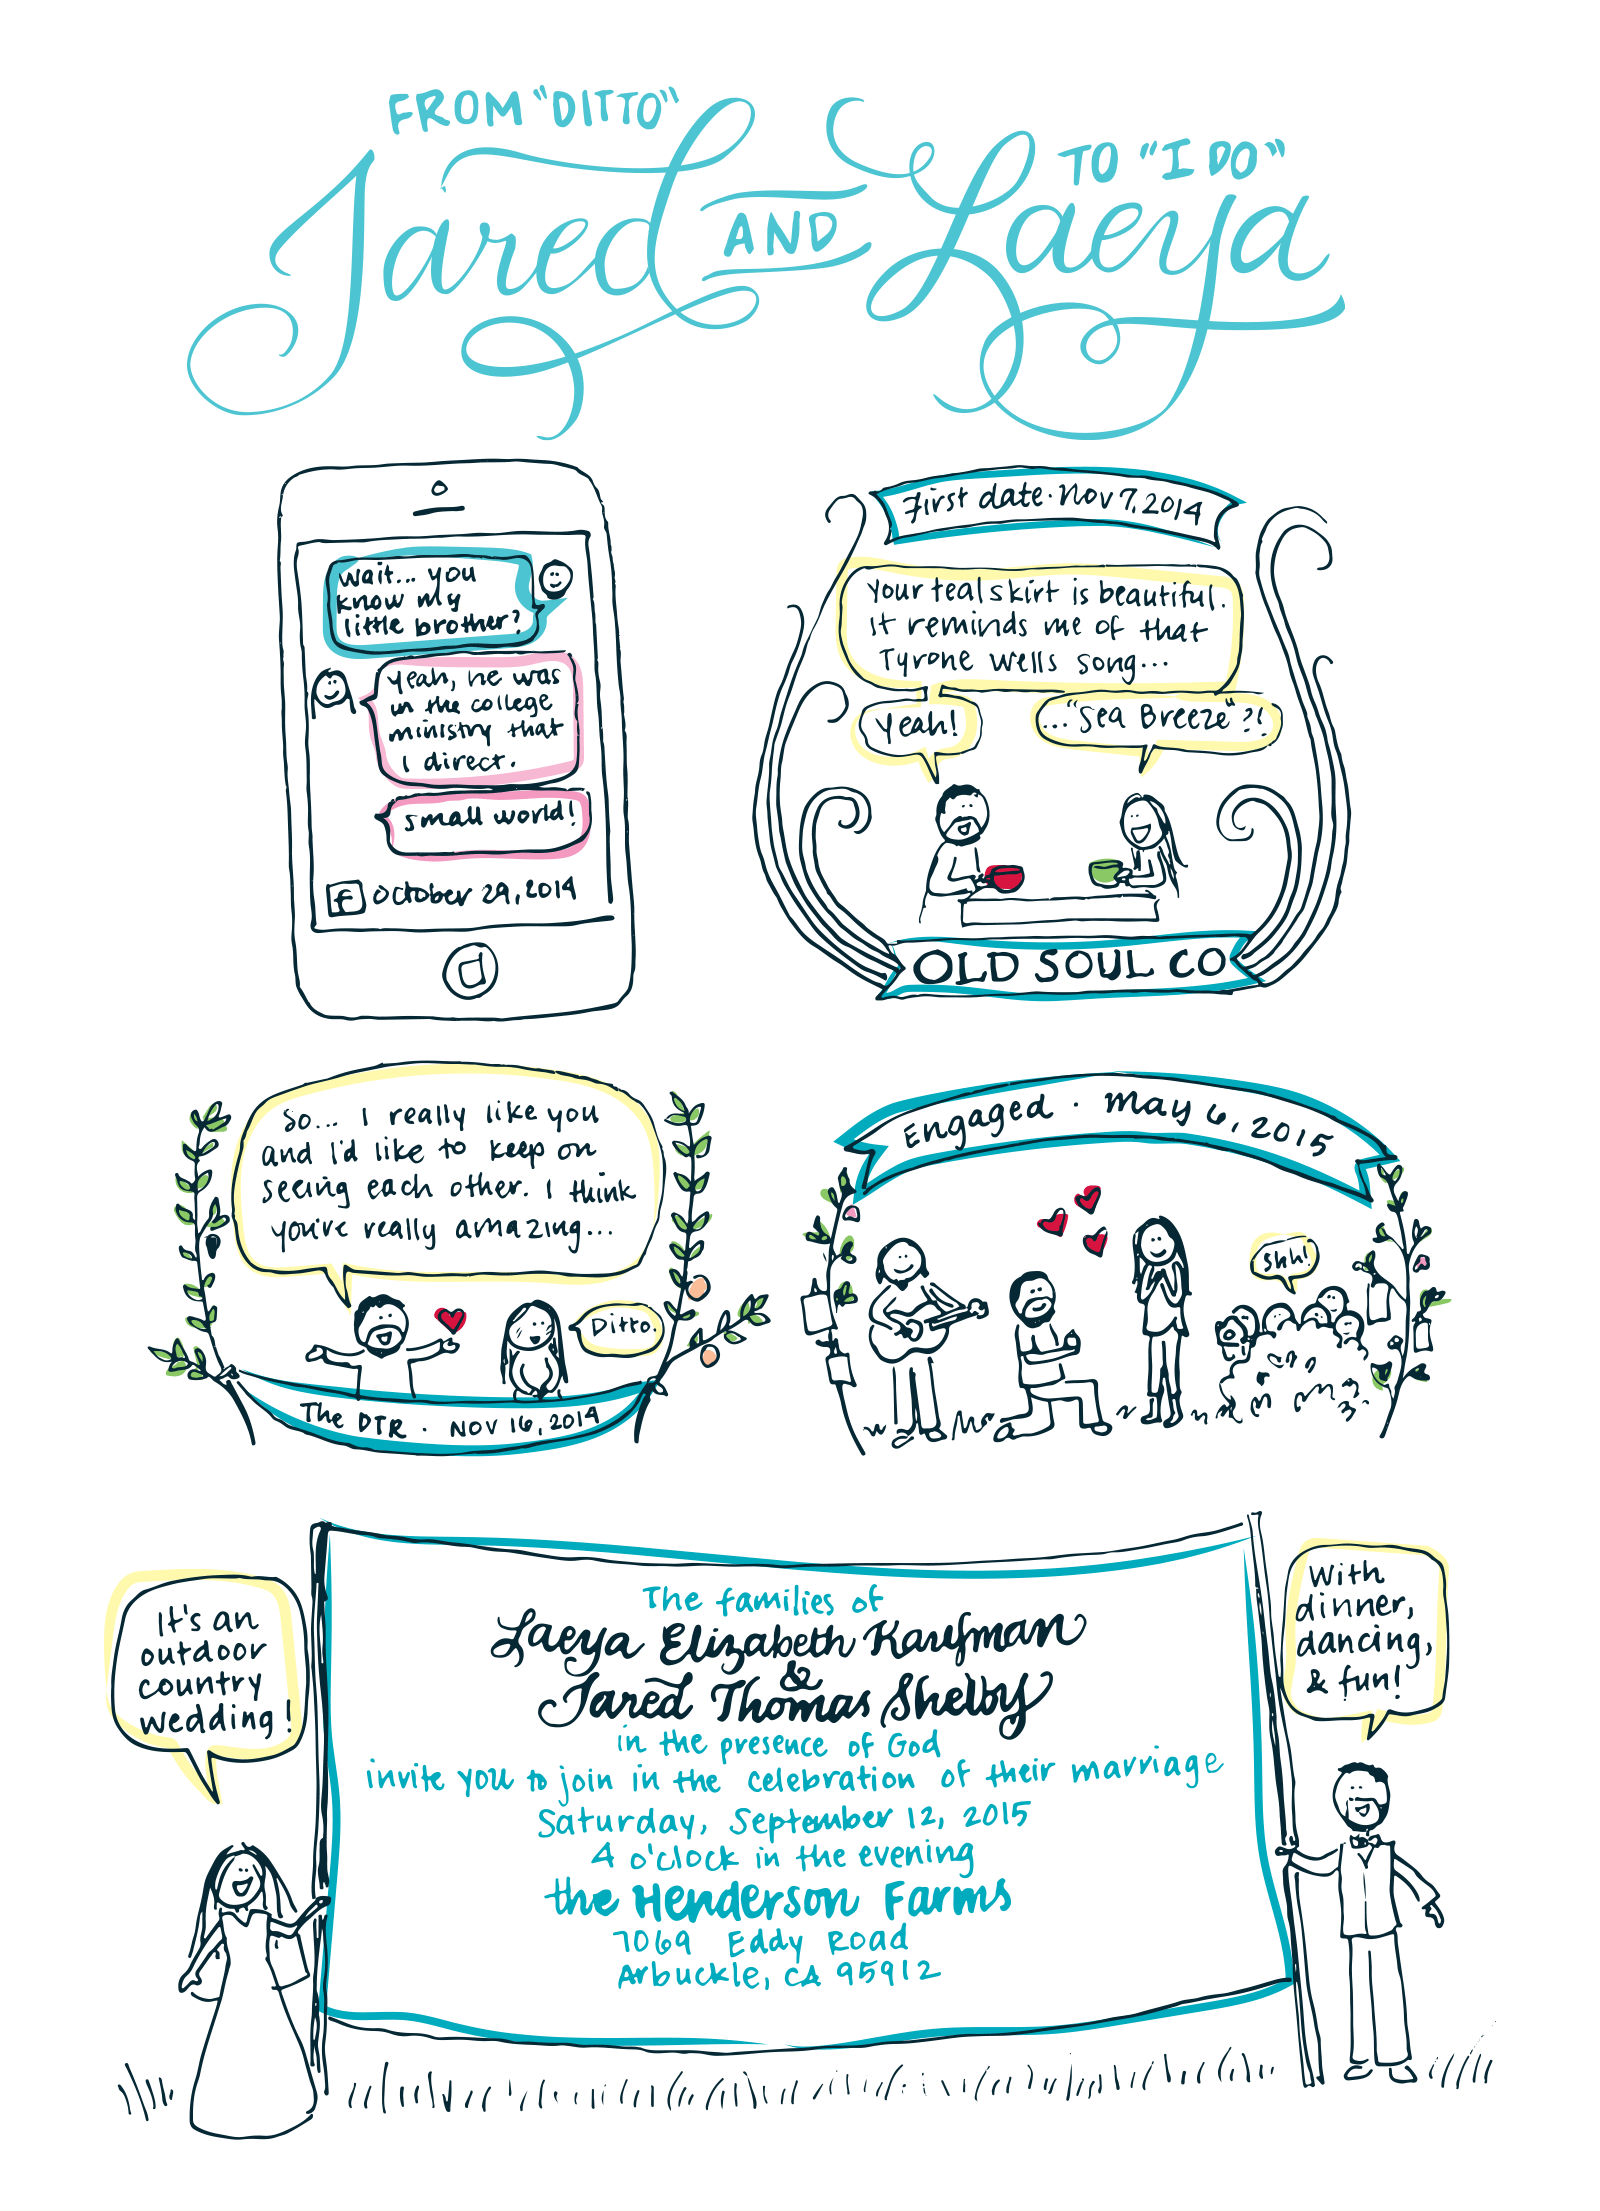 FROM "DITTO"
TO "I DO"
Jared AND Laeya
wait... you
know my
little brother?
Yeah, he was
in the college
ministry that
I direct.
small world!
f october 29, 2014
First date · Nov 7, 2014
Your teal skirt is beautiful.
It reminds me of that
Tyrone Wells song...
Yeah!
..."Sea Breeze"?!
OLD SOUL CO
So... I really like you
and I'd like to keep on
seeing each other. I think
you're really amazing...
Ditto.
The DTR · NOV 16, 2014
Engaged · May 6, 2015
Shh!
It's an
outdoor
country
wedding!
With
dinner,
dancing,
& fun!
The families of
Laeya Elizabeth Kaufman
&
Jared Thomas Shelby
in the presence of God
invite you to join in the celebration of their marriage
Saturday, September 12, 2015
4 o'clock in the evening
the Henderson Farms
7069 Eddy Road
Arbuckle, CA 95912